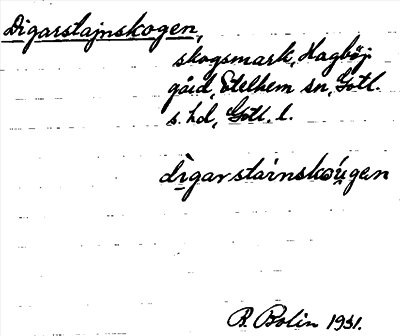 Digarstajnskogen,
skogsmark, Hagböj
gård, Etelhem sn, Gotl.
s. hd, Gotl. l.
dìgarstainskóu̯gen
B. Bolin 1931.